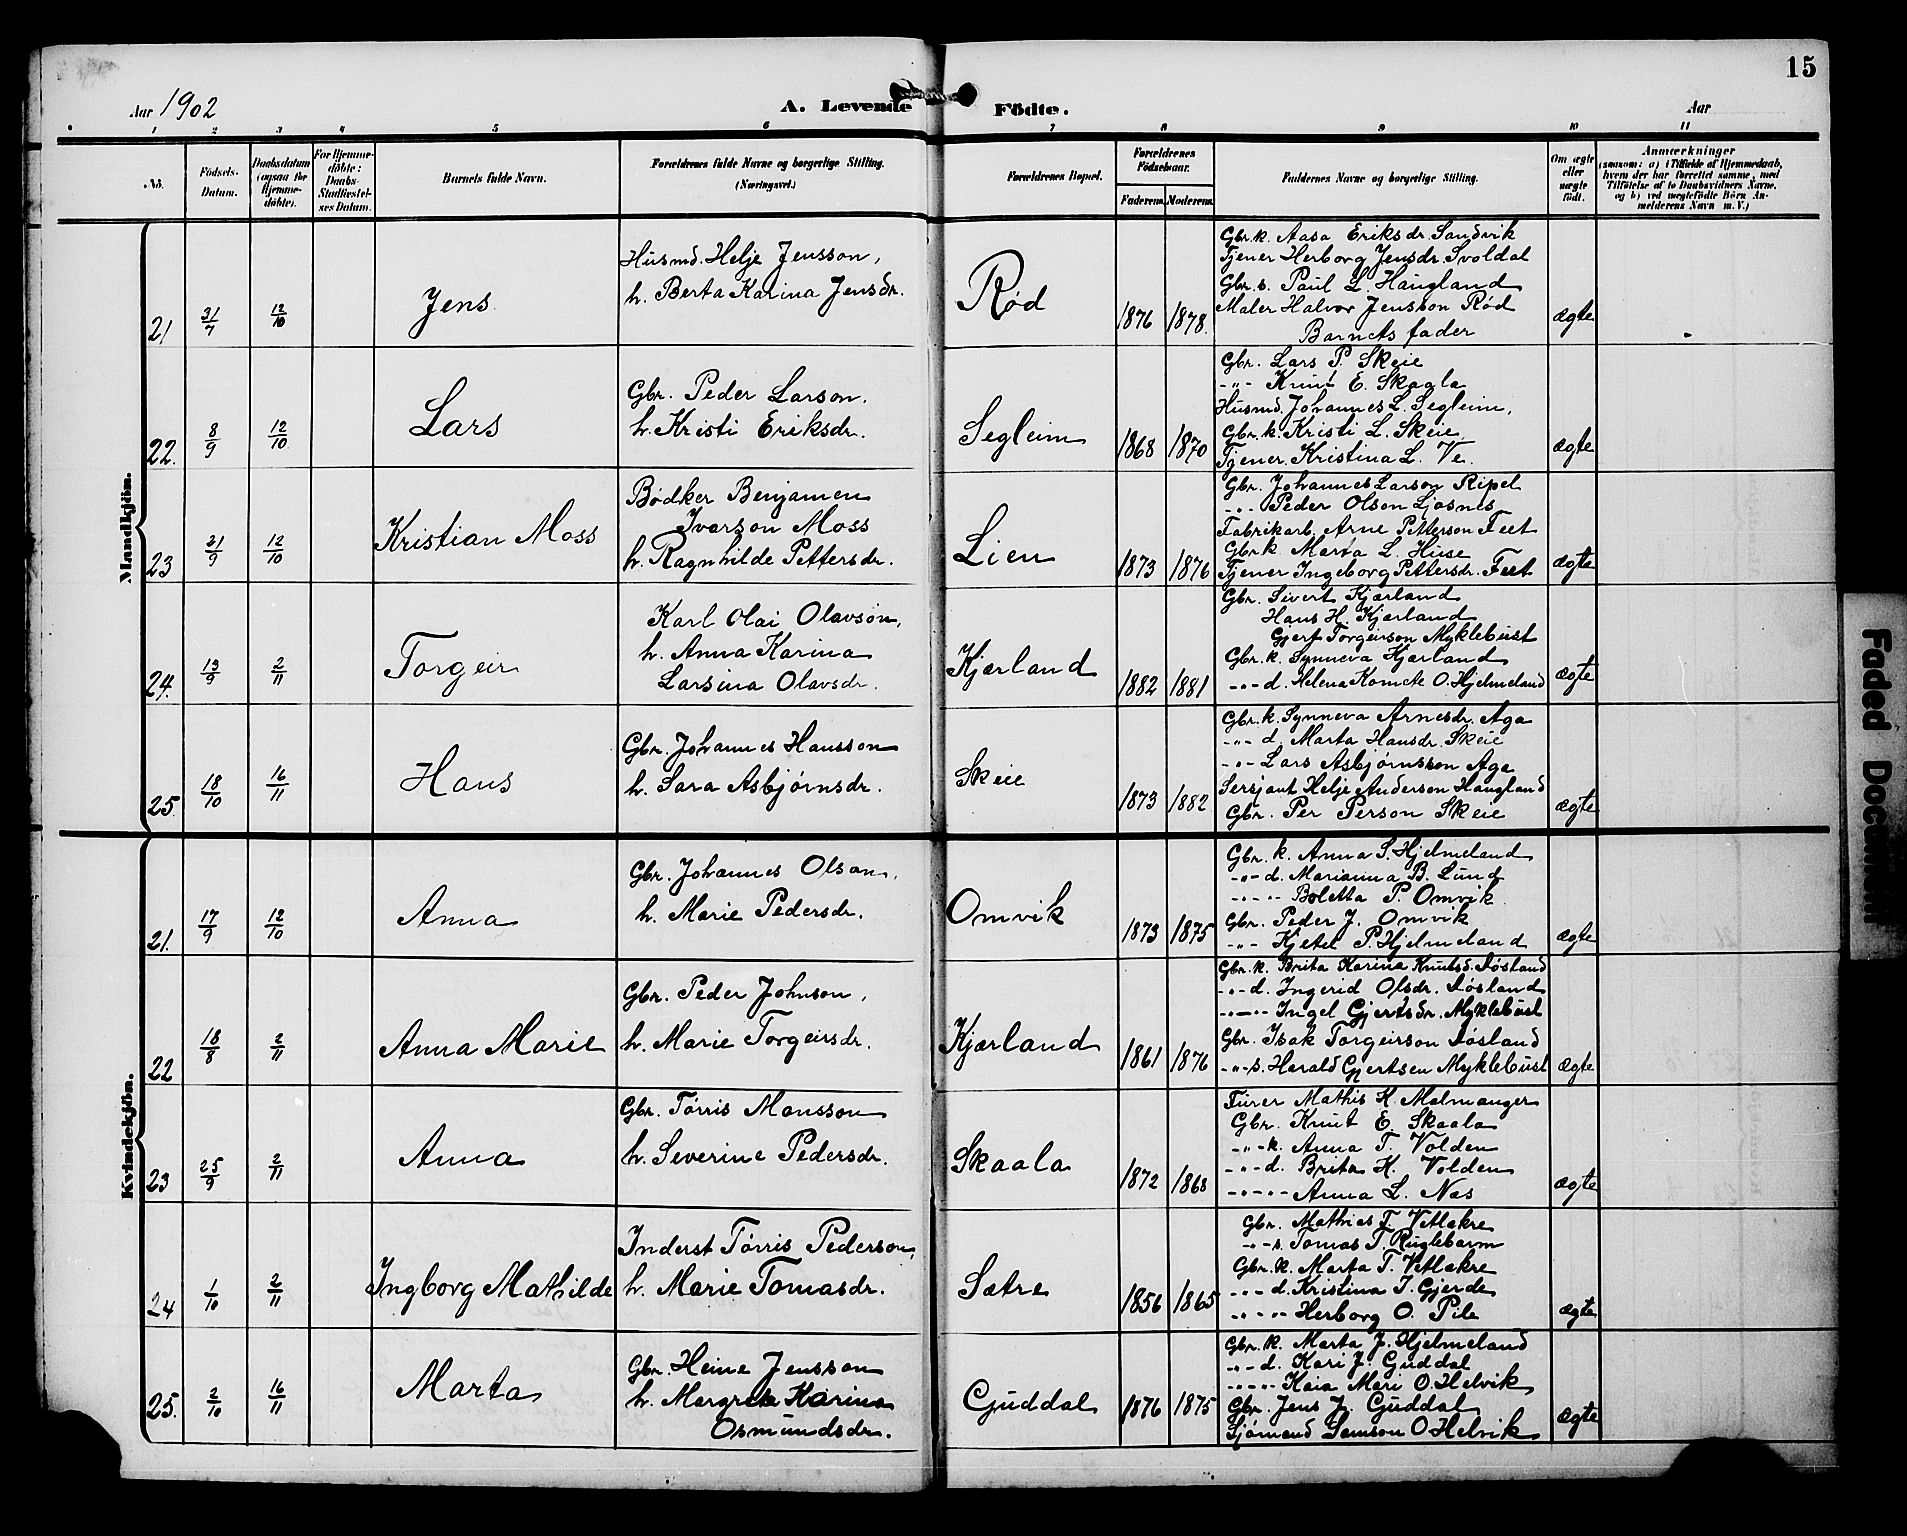 15
Aar 1902
A. Levende Födte.
Aar
1 2 3 4 5 6 7 8 9 10 11
No.
Födsels-Datum.
Daabsdatum (ogsaa for Hjemme-döbte).
For Hjemme-döbte: Daabs-Stadfæstel-ses Datum.
Barnets fulde Navn.
Forældrenes fulde Navne og borgerlige Stilling. (Næringsvei.)
Forældrenes Bopæl.
Forældrenes Födselsaar.
Faderens. Moderens.
Faddernes Navne og borgerlige Stilling.
Om ægte eller uægte födt.
Anmærkninger
(saasom: a) i Tilfælde af Hjemmedaab,
hvem der har forrettet samme, med
Tilföielse af to Daabsvidners Navne,
og b) ved uægtefödte Börn An-
melderens Navn m. V.)
Mandkjön.
21 31/7 12/10 Jens
Husmd. Helje Jensson,
h. Berta Karina Jensdr.
Rød 1876 1878.
Gbr.k. Aasa Eriksdr. Sandvik
Tjener Herborg Jensdr. Svoldal
Gbr.s. Paul L. Haugland
Maler Halvor Jensson Rød
Barnets fader
ægte
22. 8/9 12/10 Lars
Gbr. Peder Larson,
h. Kristi Eriksdr.
Segleim 1868 1870
Gbr. Lars P. Skeie
-"- Knut E. Skaala
Husmd. Johannes L. Segleim,
Gbr.k. Kristi L. Skeie
Tjener. Kristina L. Ve.
ægte
23 21/9 12/10 Kristian Moss
Bødker Benjamen
Ivarson Moss
h. Ragnhilde Pettersdr.
Lien 1873 1876
Gbr. Johannes Larson Ripel
-"- Peder Olson Ljosnes
Fabrikarb. Arne Petterson Feet
Gbr.k Marta L. Huse
Tjener Ingeborg Pettersdr. Feet
ægte
24. 13/9 2/11 Torgeir
Karl Olai Olavson,
h. Anna Karina
Larsina Olavsdr.
Kjærland 1882 1881
Gbr. Sivert Kjærland
Hans H. Kjærland
Gjert Torgeirson Myklebust
Gbr.k. Synneva Kjærland
-"-d. Helena Komete O. Hjelmeland
ægte
25. 18/10 16/11 Hans
Gbr. Johannes Hansson
h. Sara Asbjørnsdr.
Skeie 1873 1882
Gbr.k. Synneva Arnesdr. Aga
-"- d. Marta Hansdr. Skeie
-"- Lars Asbjørnsson Aga
Sersjant Helje Anderson Haugland
Gbr. Per Person Skeie
ægte
Kvindekjön.
21. 17/9 12/10 Anna
Gbr. Johannes Olson,
h. Marie Pedersdr.
Omvik 1873 1875
Gbr. k. Anna S. Hjelmeland
-"-d. Marianna B. Lund
-"-"- Boletta P. Omvik
Gbr. Peder J. Omvik
-"- Kjetel P. Hjelmeland
ægte
22 18/8 2/11 Anna Marie
Gbr. Peder Johnson,
h. Marie Torgeirsdr.
Kjærland 1861 1876
Gbr.k. Brita Karina Knutsd. Døsland
-"-d. Ingerid Olsdr. Døsland
-"-"- Ingel Gjertsdr. Myklebust
Gbr. Isak Torgeirson Døsland
-"-s. Harald Gjertsen Myklebust
ægte
23 25/9 2/11 Anna
Gbr. Tørris Monsson
h. Severine Pedersdr.
Skaala 1872 1868
Furer Mathis K. Malmanger
Gbr. Knut E. Skaala
-"-k. Anna T. Volden
-"-d. Brita K. Volden
-"-"- Anna L. Nes
ægte
24 1/10 2/11 Ingborg Mathilde
Inderst Tørris Pederson,
h. Marie Tomasdr.
Sætre 1856 1865
Gbr. Mathies T. Vetlakre
-"-s. Tomas T. Ruglebarm
Gbr.k. Marta T. Vetlakre
-"-d. Kristina T. Gjerde
-"-"- Herborg O. Pile
ægte
25. 2/10 16/11 Marta
Gbr. Heine Jensson
h. Margreta Karina
Osmundsdr.
Guddal 1876 1875
Gbr.k. Marta J. Hjelmeland
-"-d. Kari J. Guddal
-"-"- Kaia Mari O. Helvik
Gbr. Jens J. Guddal
Sjømand Samson O Helvik
ægte
Faded Document